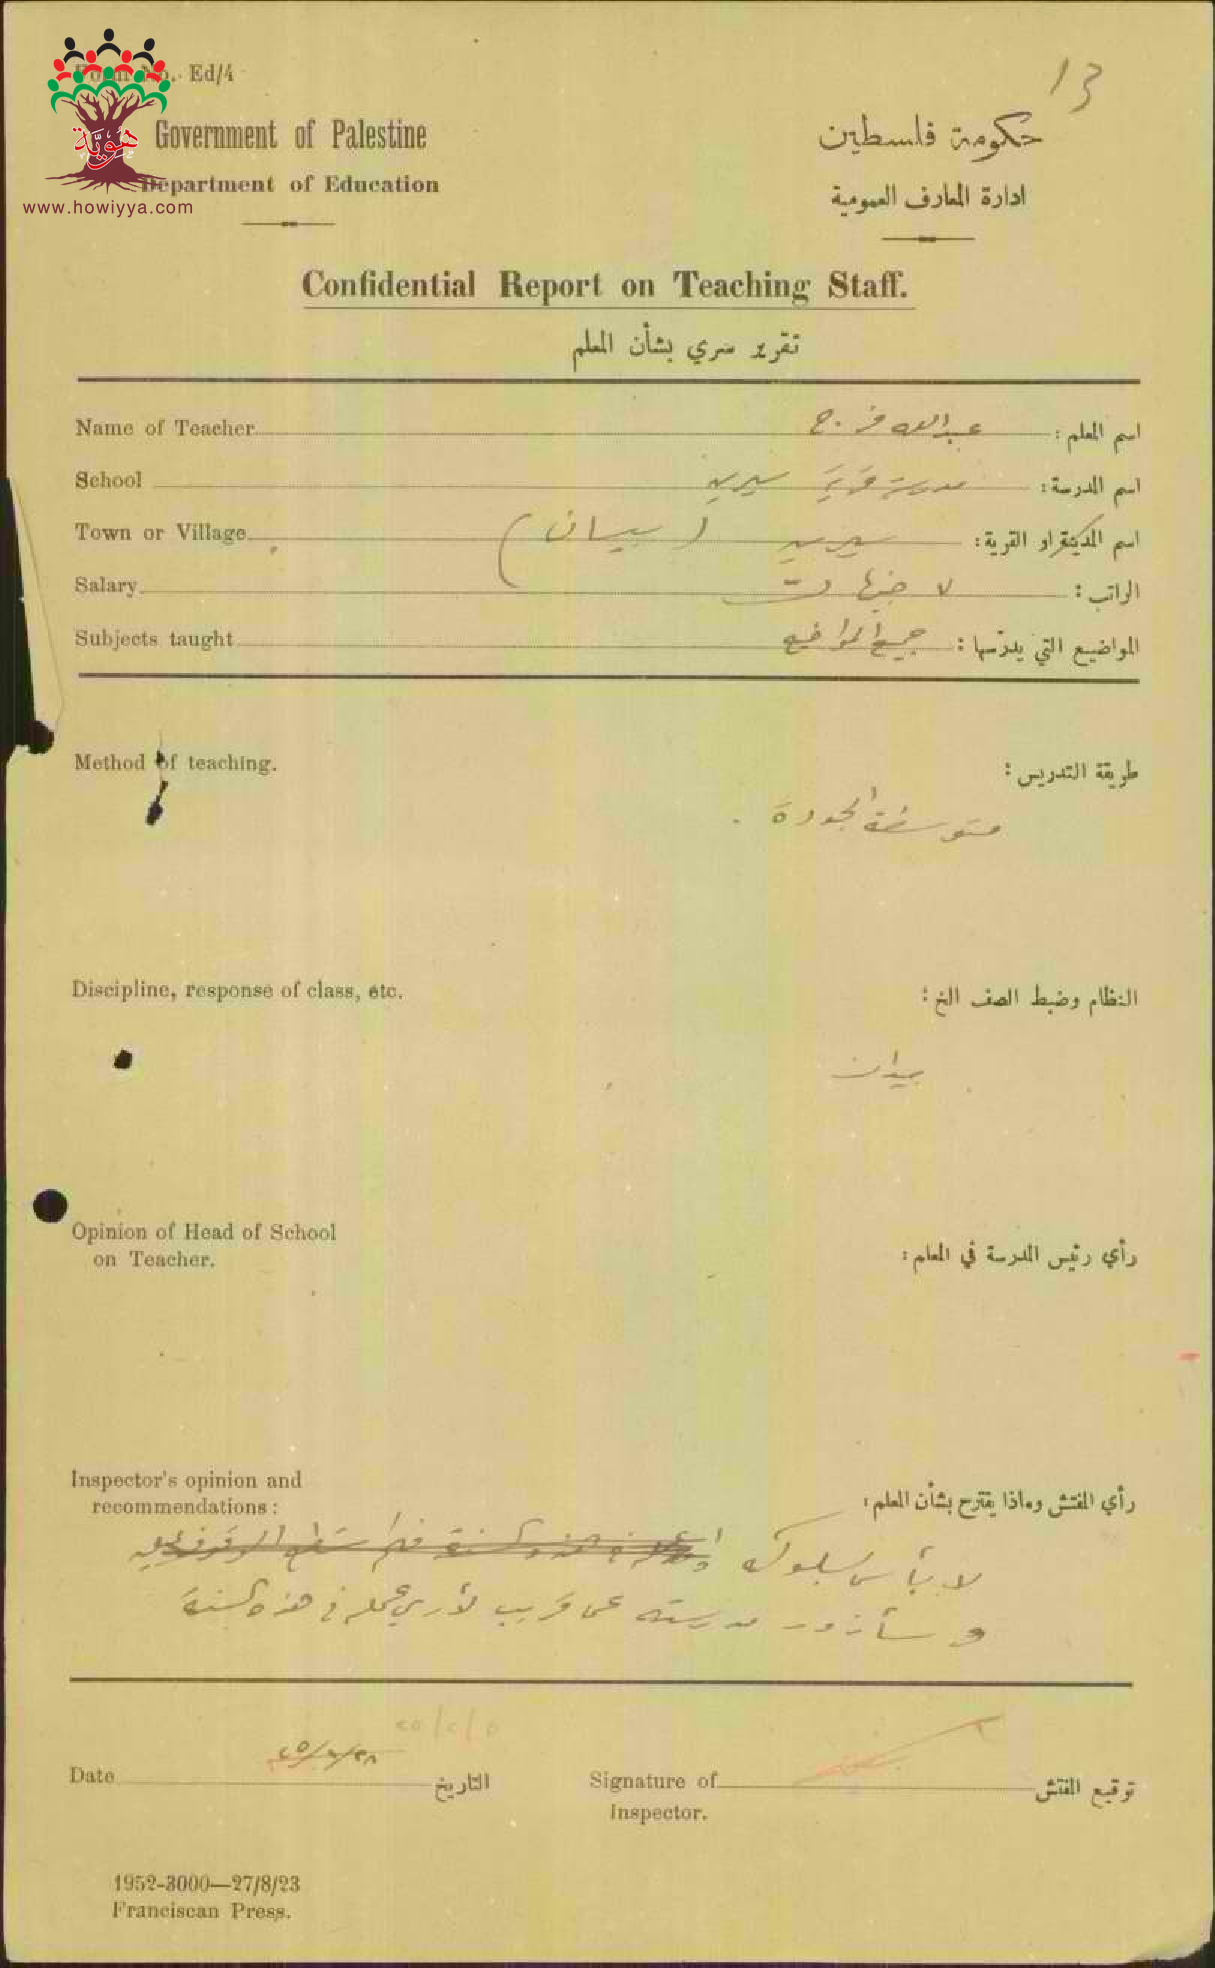 Form No. Ed/4
13
هوية
www.howiyya.com
Government of Palestine
حكومة فلسطين
Department of Education
ادارة المعارف العمومية
Confidential Report on Teaching Staff.
تقرير سري بشأن المعلم
Name of Teacher
اسم المعلم : عبدالله فرج
School
اسم المدرسة : مدرسة قرية سيرين
Town or Village
اسم المدينة او القرية : سيرين (بيسان)
Salary
الراتب : ٧ جنيهات
Subjects taught
المواضيع التي يدرّسها : جميع المواضيع
Method of teaching.
طريقة التدريس :
متوسطة الجودة .
Discipline, response of class, etc.
النظام وضبط الصف الخ :
جيدان
Opinion of Head of School
on Teacher.
رأي رئيس المدرسة في المعلم :
Inspector's opinion and
recommendations :
رأي المفتش وماذا يقترح بشأن المعلم :
لا بأس بسلوكه
وسأزور مدرسته عن قريب لأرى عمله في هذه السنة
Date
التاريخ
Signature of
Inspector.
توقيع المفتش
1952-3000—27/8/23
Franciscan Press.